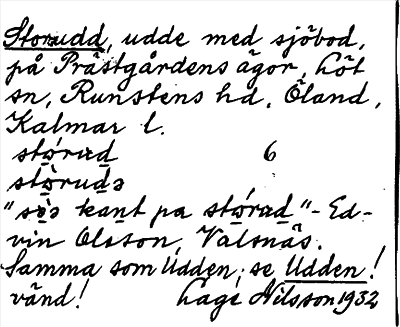 Storudd, udde med sjöbod,
på Prästgårdens ägor, Löt
sn, Runstens hd, Öland,
Kalmar l.
stó̠ru̠d̠ 6
stò̠ru̠d̠ə
"sə̠̀ə kan̠t pa stó̠ru̠d̠" - Ed-
vin Olsson, Valsnäs.
Samma som Udden; se Udden!
vänd! Lage Nilsson 1932